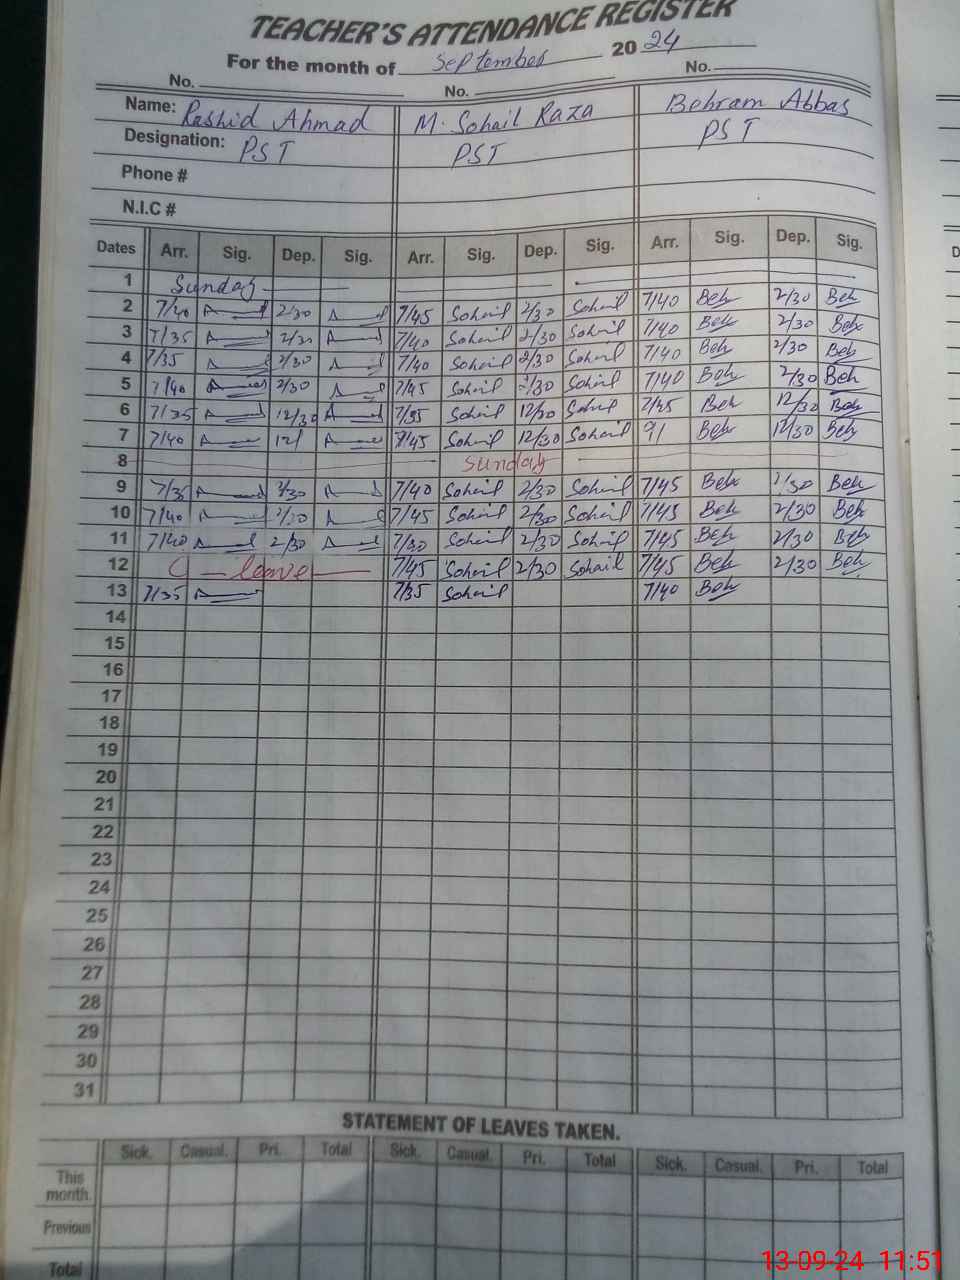 TEACHER'S ATTENDANCE REGISTER
For the month of September 2024
No. No. No.
Name: Rashid Ahmad M. Sohail Raza Behram Abbas
Designation: PST PST PST
Phone #
N.I.C #
Dates Arr. Sig. Dep. Sig. Arr. Sig. Dep. Sig. Arr. Sig. Dep. Sig.
1 Sunday
2 7/40 2/30 7/45 Sohail 2/30 Sohail 7/40 Beh 2/30 Beh
3 7/35 2/30 7/40 Sohail 2/30 Sohail 7/40 Beh 2/30 Beh
4 7/35 2/30 7/40 Sohail 2/30 Sohail 7/40 Beh 2/30 Beh
5 7/40 2/30 7/45 Sohail 2/30 Sohail 7/40 Beh 2/30 Beh
6 7/35 12/30 7/35 Sohail 12/30 Sohail Beh 12/30 Beh
7 7/40 12/ 7/45 Sohail 12/30 Sohail 9/ Beh 12/30 Beh
8 Sunday
9 7/35 2/30 7/40 Sohail 2/30 Sohail 7/45 Beh 2/30 Beh
10 7/40 2/30 7/45 Sohail 2/30 Sohail 7/45 Beh 2/30 Beh
11 7/40 2/30 7/30 Sohail 2/30 Sohail 7/45 Beh 2/30 Beh
12 C leave 7/45 Sohail 2/30 Sohail 7/45 Beh 2/30 Beh
13 7/35 7/35 Sohail 7/40 Beh
14
15
16
17
18
19
20
21
22
23
24
25
26
27
28
29
30
31
STATEMENT OF LEAVES TAKEN.
Sick. Casual. Pri. Total Sick. Casual. Pri. Total Sick. Casual. Pri. Total
This month.
Previous
Total
13-09-24 11:51